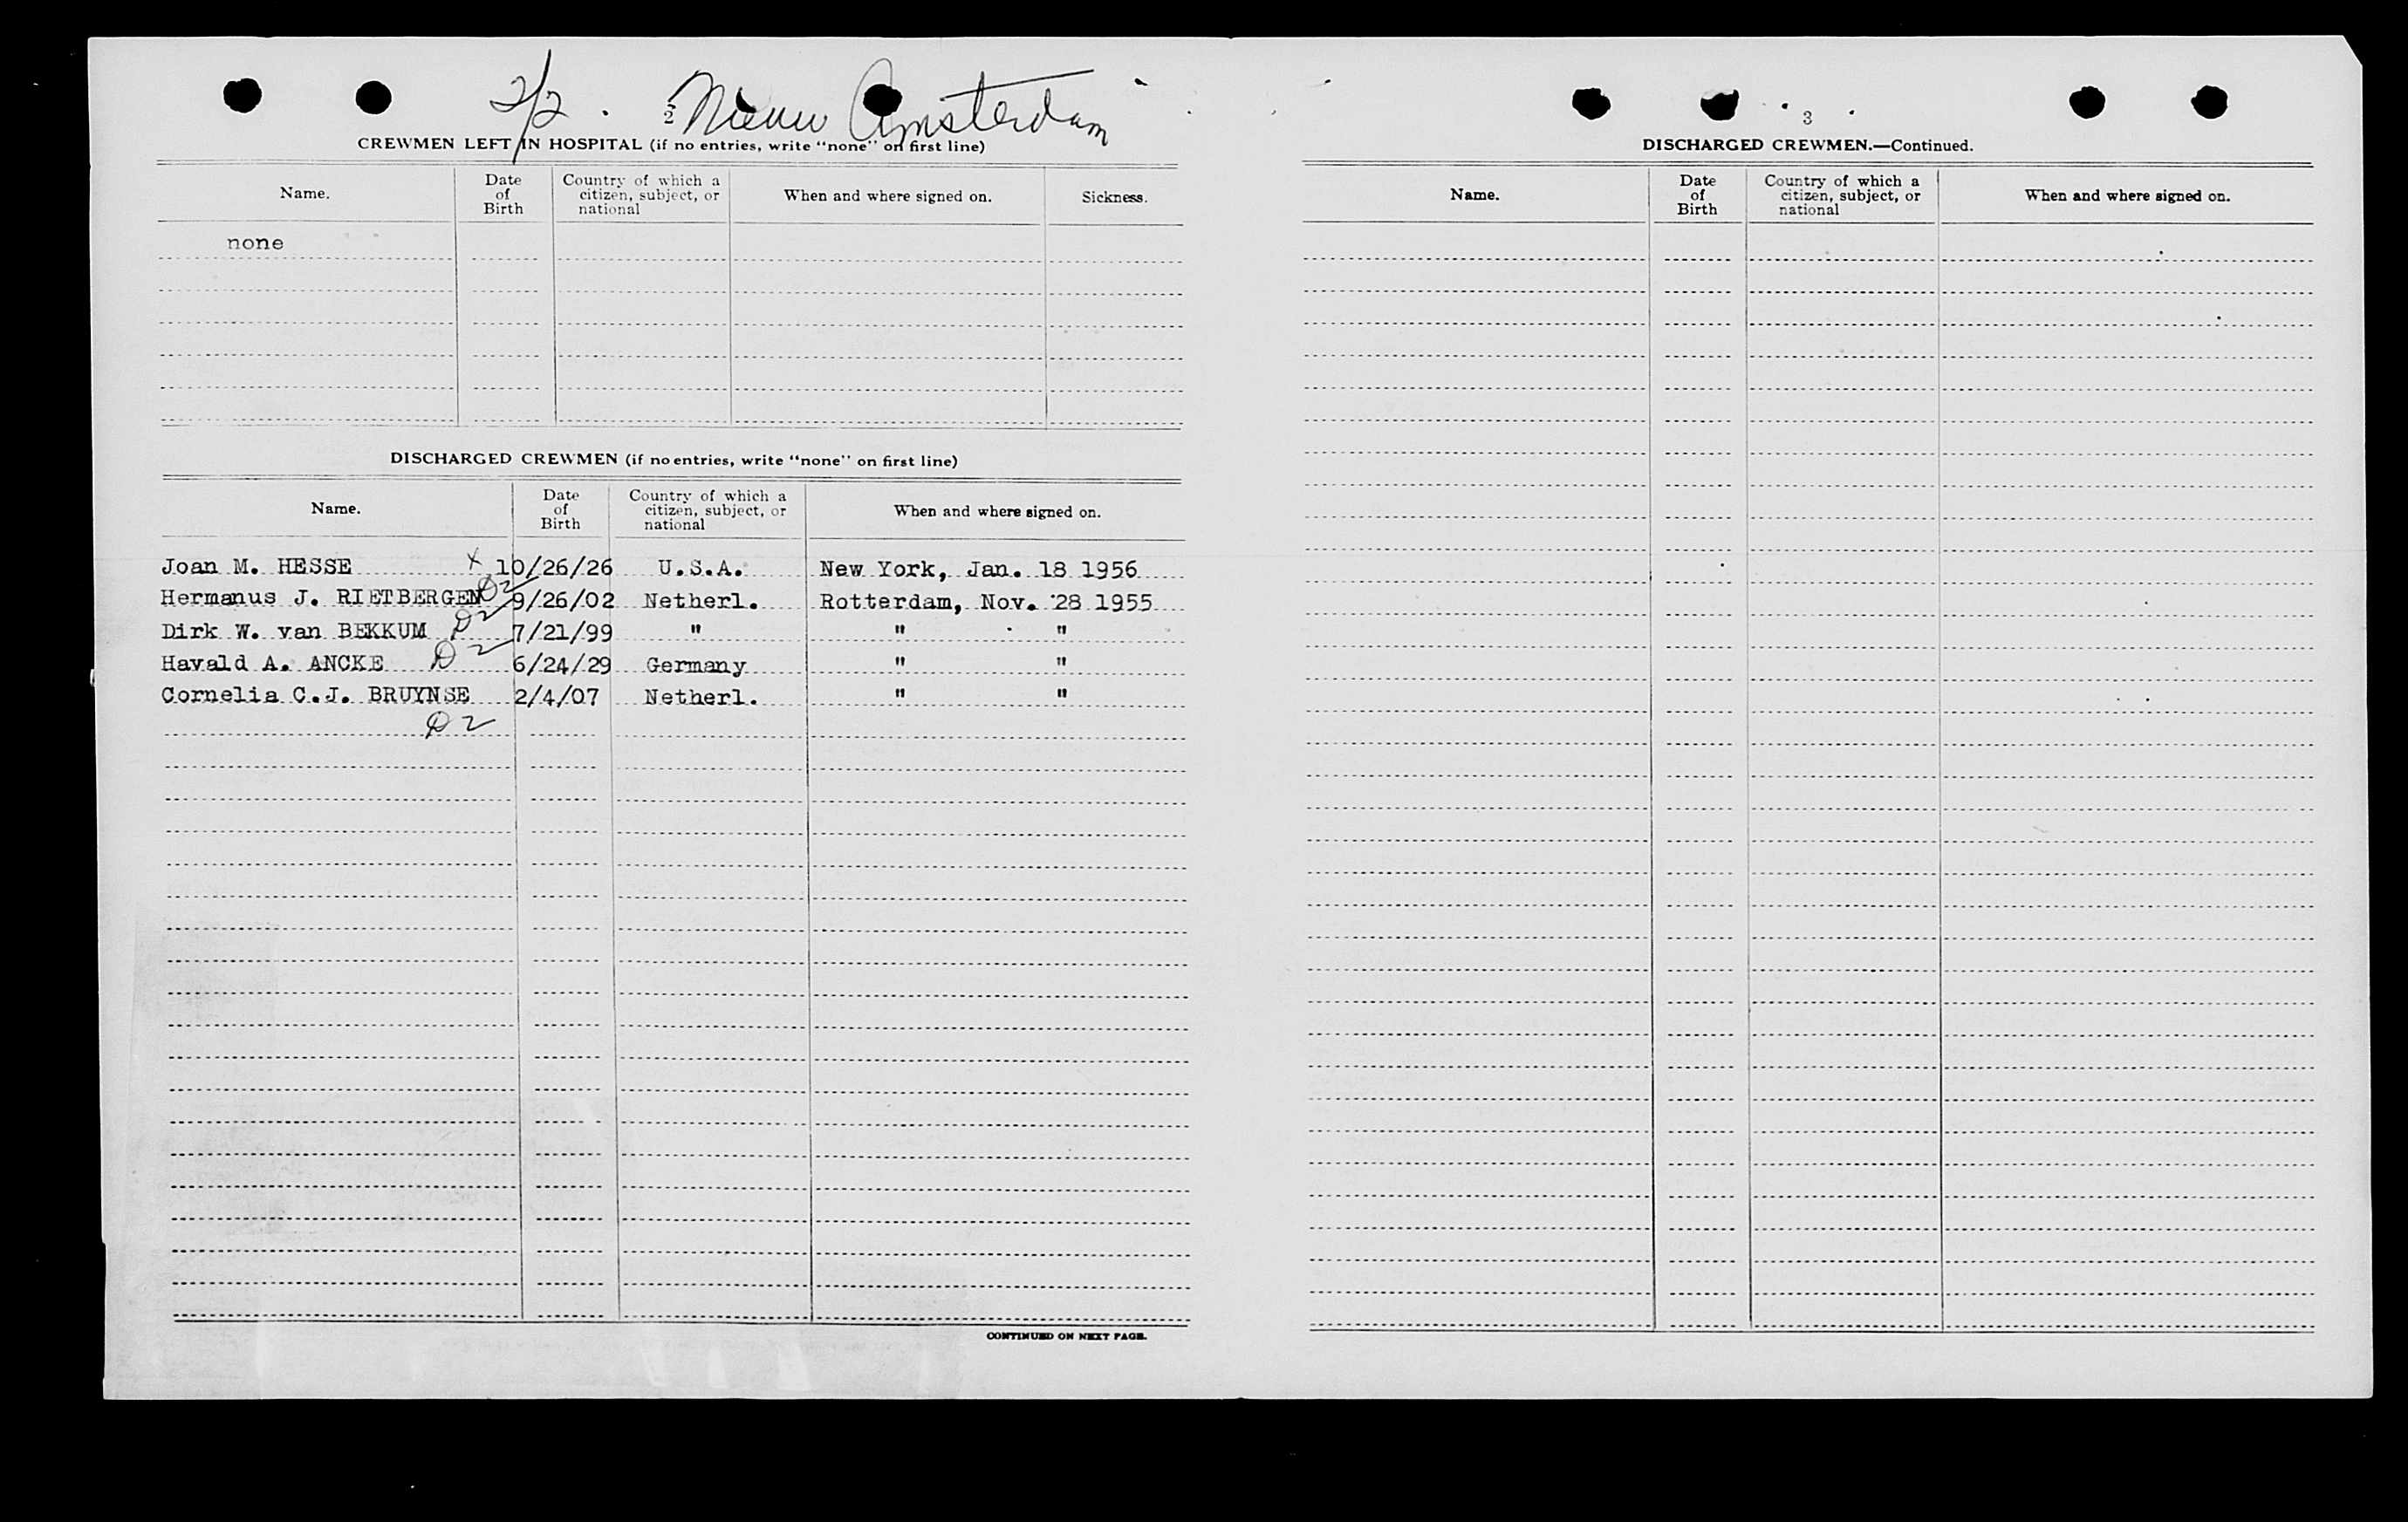 2/2 Nieuw Amsterdam
2
CREWMEN LEFT IN HOSPITAL (if no entries, write "none" on first line)
Name.
Date of Birth
Country of which a citizen, subject, or national
When and where signed on.
Sickness.
none
DISCHARGED CREWMEN (if no entries, write "none" on first line)
Name.
Date of Birth
Country of which a citizen, subject, or national
When and where signed on.
Joan M. HESSE x 10/26/26 U.S.A. New York, Jan. 18 1956
Hermanus J. RIETBERGEN D2 9/26/02 Netherl. Rotterdam, Nov. 28 1955
Dirk W. van BEKKUM D2 7/21/99 " " "
Havald A. ANCKE D2 6/24/29 Germany " "
Cornelia C.J. BRUYNSE 2/4/07 Netherl. " "
D2
CONTINUED ON NEXT PAGE.
3
DISCHARGED CREWMEN.—Continued.
Name.
Date of Birth
Country of which a citizen, subject, or national
When and where signed on.